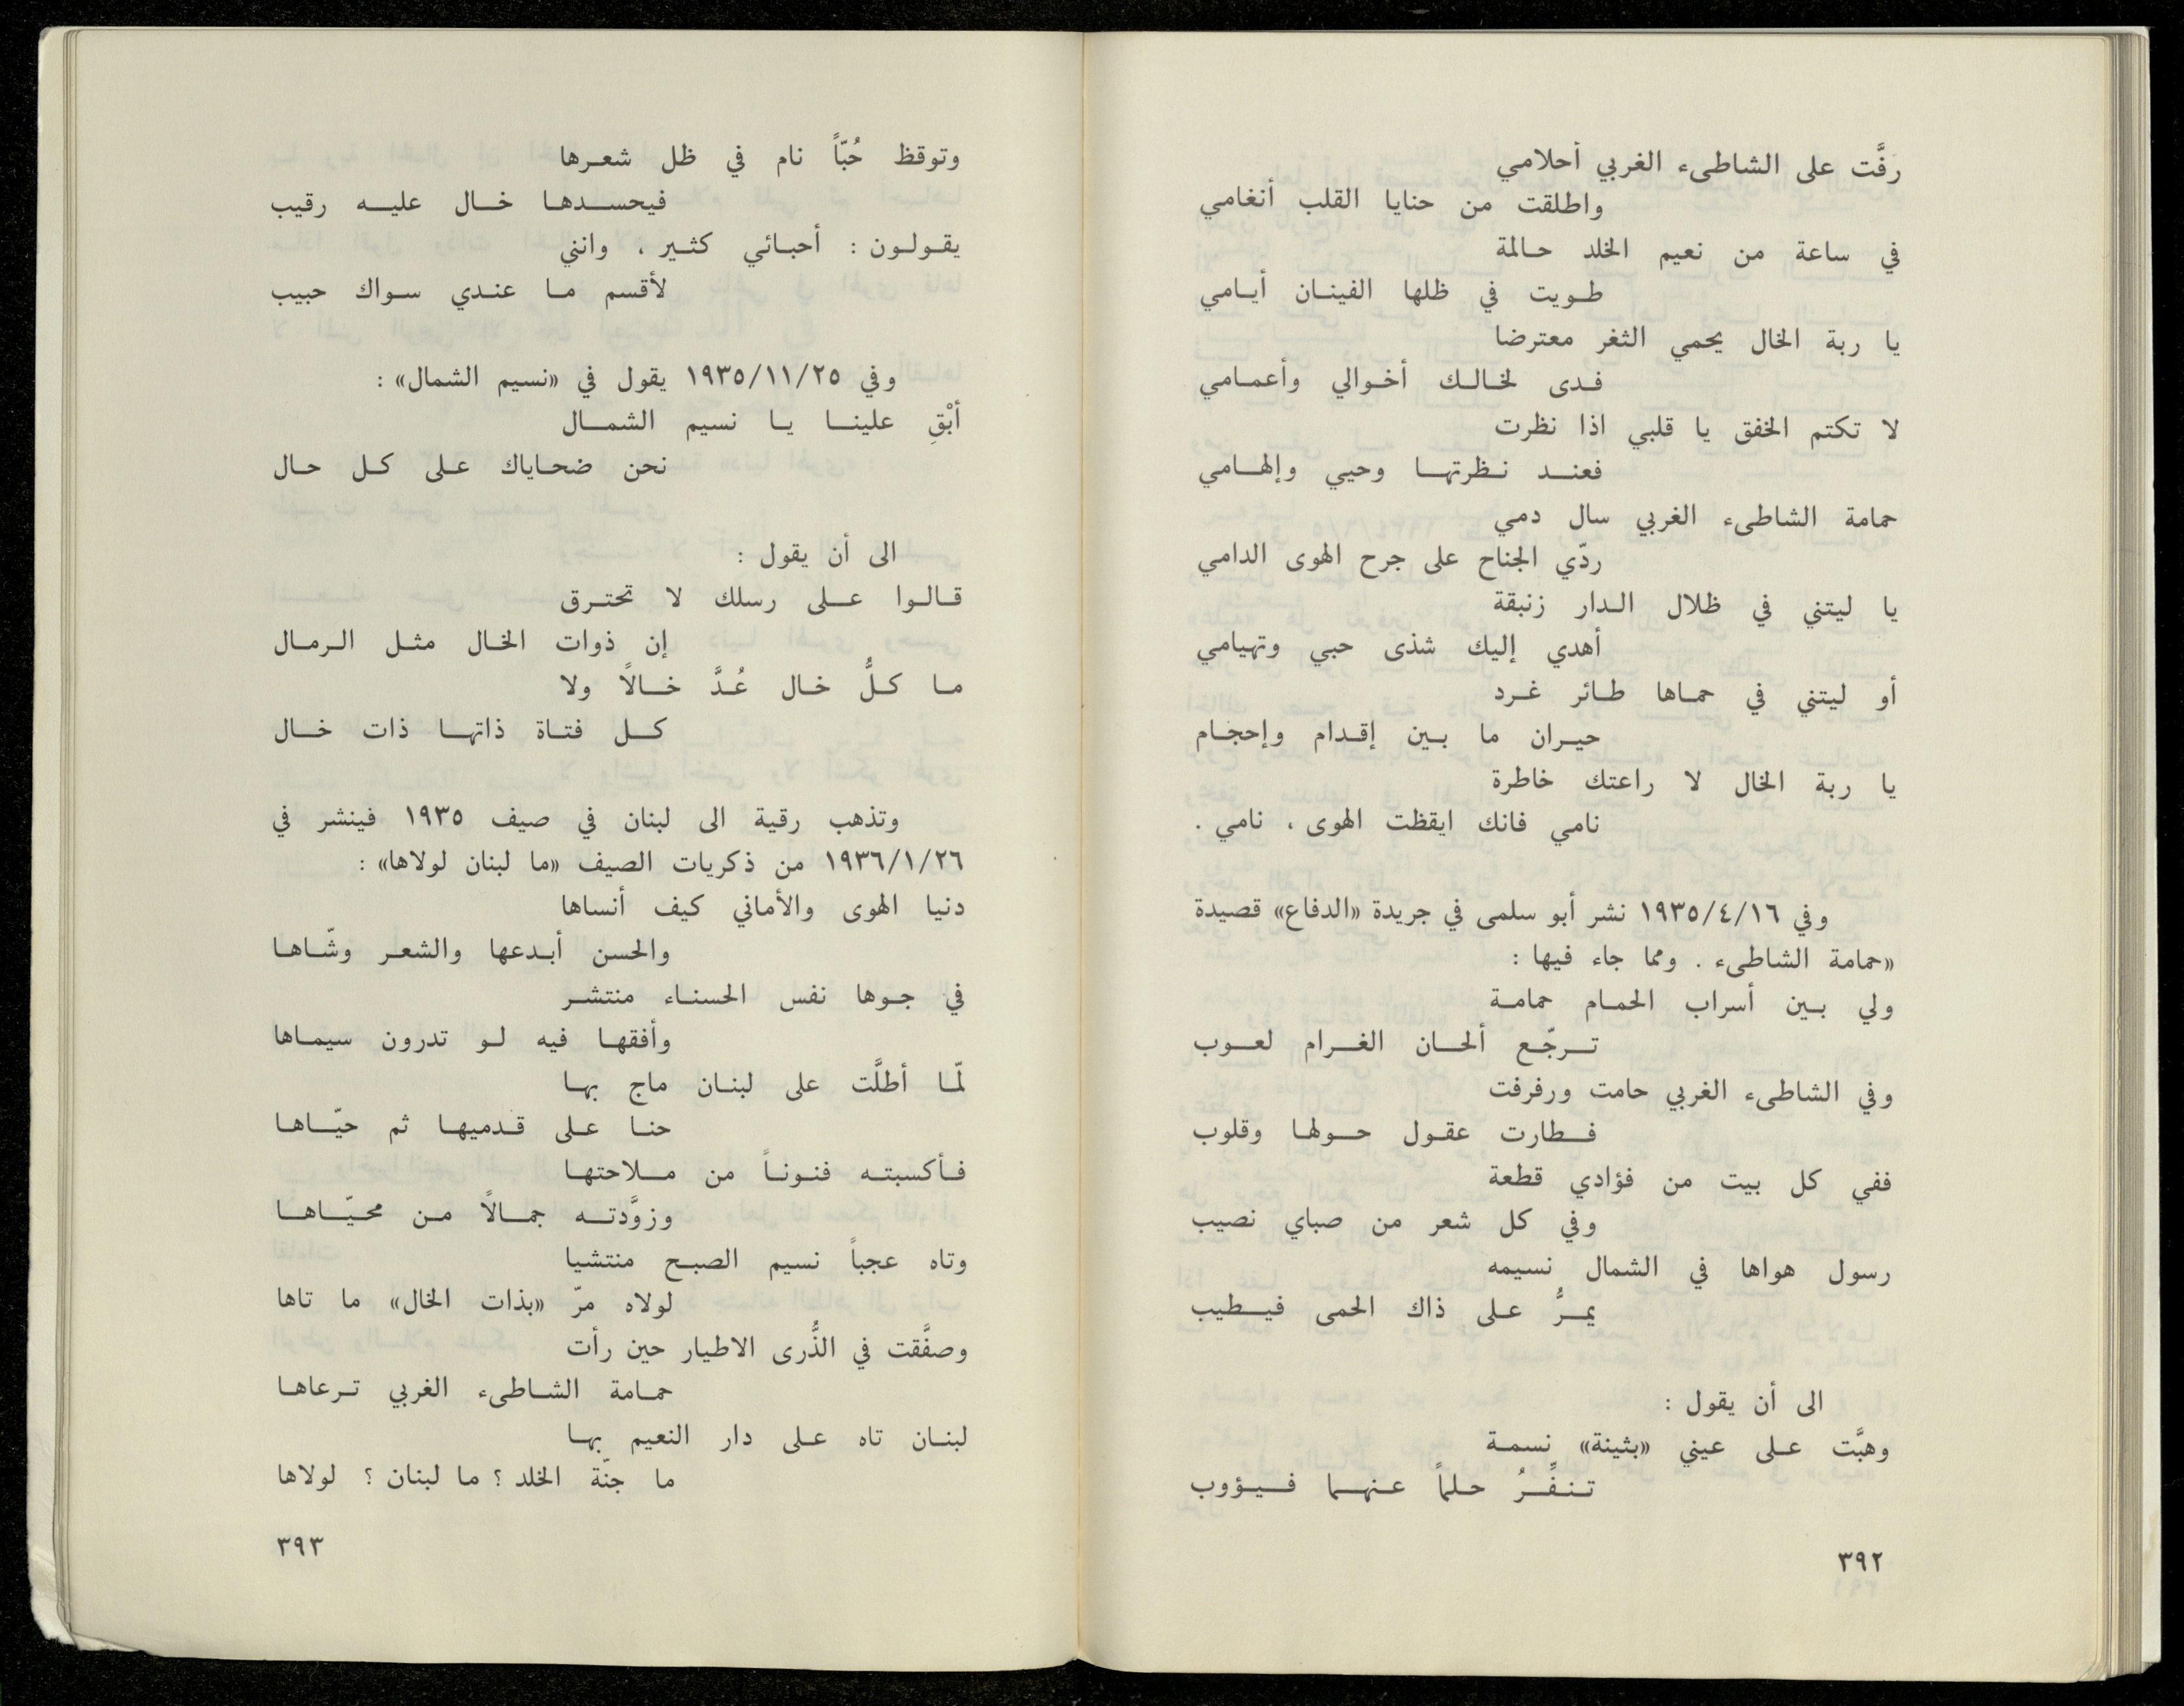 رفَّت على الشاطىء الغربي أحلامي
واطلقت من حنايا القلب أنغامي
في ساعة من نعيم الخلد حالمة
طويت في ظلها الفينان أيامي
يا ربة الخال يحمي الثغر معترضا
فدى لخالك أخوالي وأعمامي
لا تكتم الخفق يا قلبي اذا نظرت
فعند نظرتها وحيي وإلهامي
حمامة الشاطىء الغربي سال دمي
ردّي الجناح على جرح الهوى الدامي
يا ليتني في ظلال الدار زنبقة
أهدي إليك شذى حبي وتهيامي
أو ليتني في حماها طائر غرد
حيران ما بين إقدام وإحجام
يا ربة الخال لا راعتك خاطرة
نامي فانك ايقظت الهوى ، نامي .
وفي ١٩٣٥/٤/١٦ نشر أبو سلمى في جريدة «الدفاع» قصيدة
«حمامة الشاطىء . ومما جاء فيها :
ولي بين أسراب الحمام حمامة
ترجّع ألحان الغرام لعوب
وفي الشاطىء الغربي حامت ورفرفت
فطارت عقول حولها وقلوب
ففي كل بيت من فؤادي قطعة
وفي كل شعر من صباي نصيب
رسول هواها في الشمال نسيمه
يمرُّ على ذاك الحمى فيطيب
الى أن يقول :
وهبَّت على عيني «بثينة» نسمة
تنفِّرُ حلماً عنهما فيؤوب
٣٩٢
وتوقظ حُبّاً نام في ظل شعرها
فيحسدها خال عليه رقيب
يقولون : أحبائي كثير ، وانني
لأقسم ما عندي سواك حبيب
وفي ١٩٣٥/١١/٢٥ يقول في «نسيم الشمال» :
أبْقِ علينا يا نسيم الشمال
نحن ضحاياك على كل حال
الى أن يقول :
قالوا على رسلك لا تحترق
إن ذوات الخال مثل الرمال
ما كلُّ خال عُدَّ خالاً ولا
كل فتاة ذاتها ذات خال
وتذهب رقية الى لبنان في صيف ١٩٣٥ فينشر في
١٩٣٦/١/٢٦ من ذكريات الصيف «ما لبنان لولاها» :
دنيا الهوى والأماني كيف أنساها
والحسن أبدعها والشعر وشّاها
في جوها نفس الحسناء منتشر
وأفقها فيه لو تدرون سيماها
لمّا أطلَّت على لبنان ماج بها
حنا على قدميها ثم حيّاها
فأكسبته فنوناً من ملاحتها
وزوَّدته جمالاً من محيّاها
وتاه عجباً نسيم الصبح منتشيا
لولاه مرّ «بذات الخال» ما تاها
وصفَّقت في الذُّرى الاطيار حين رأت
حمامة الشاطىء الغربي ترعاها
لبنان تاه على دار النعيم بها
ما جنّة الخلد ؟ ما لبنان ؟ لولاها
٣٩٣